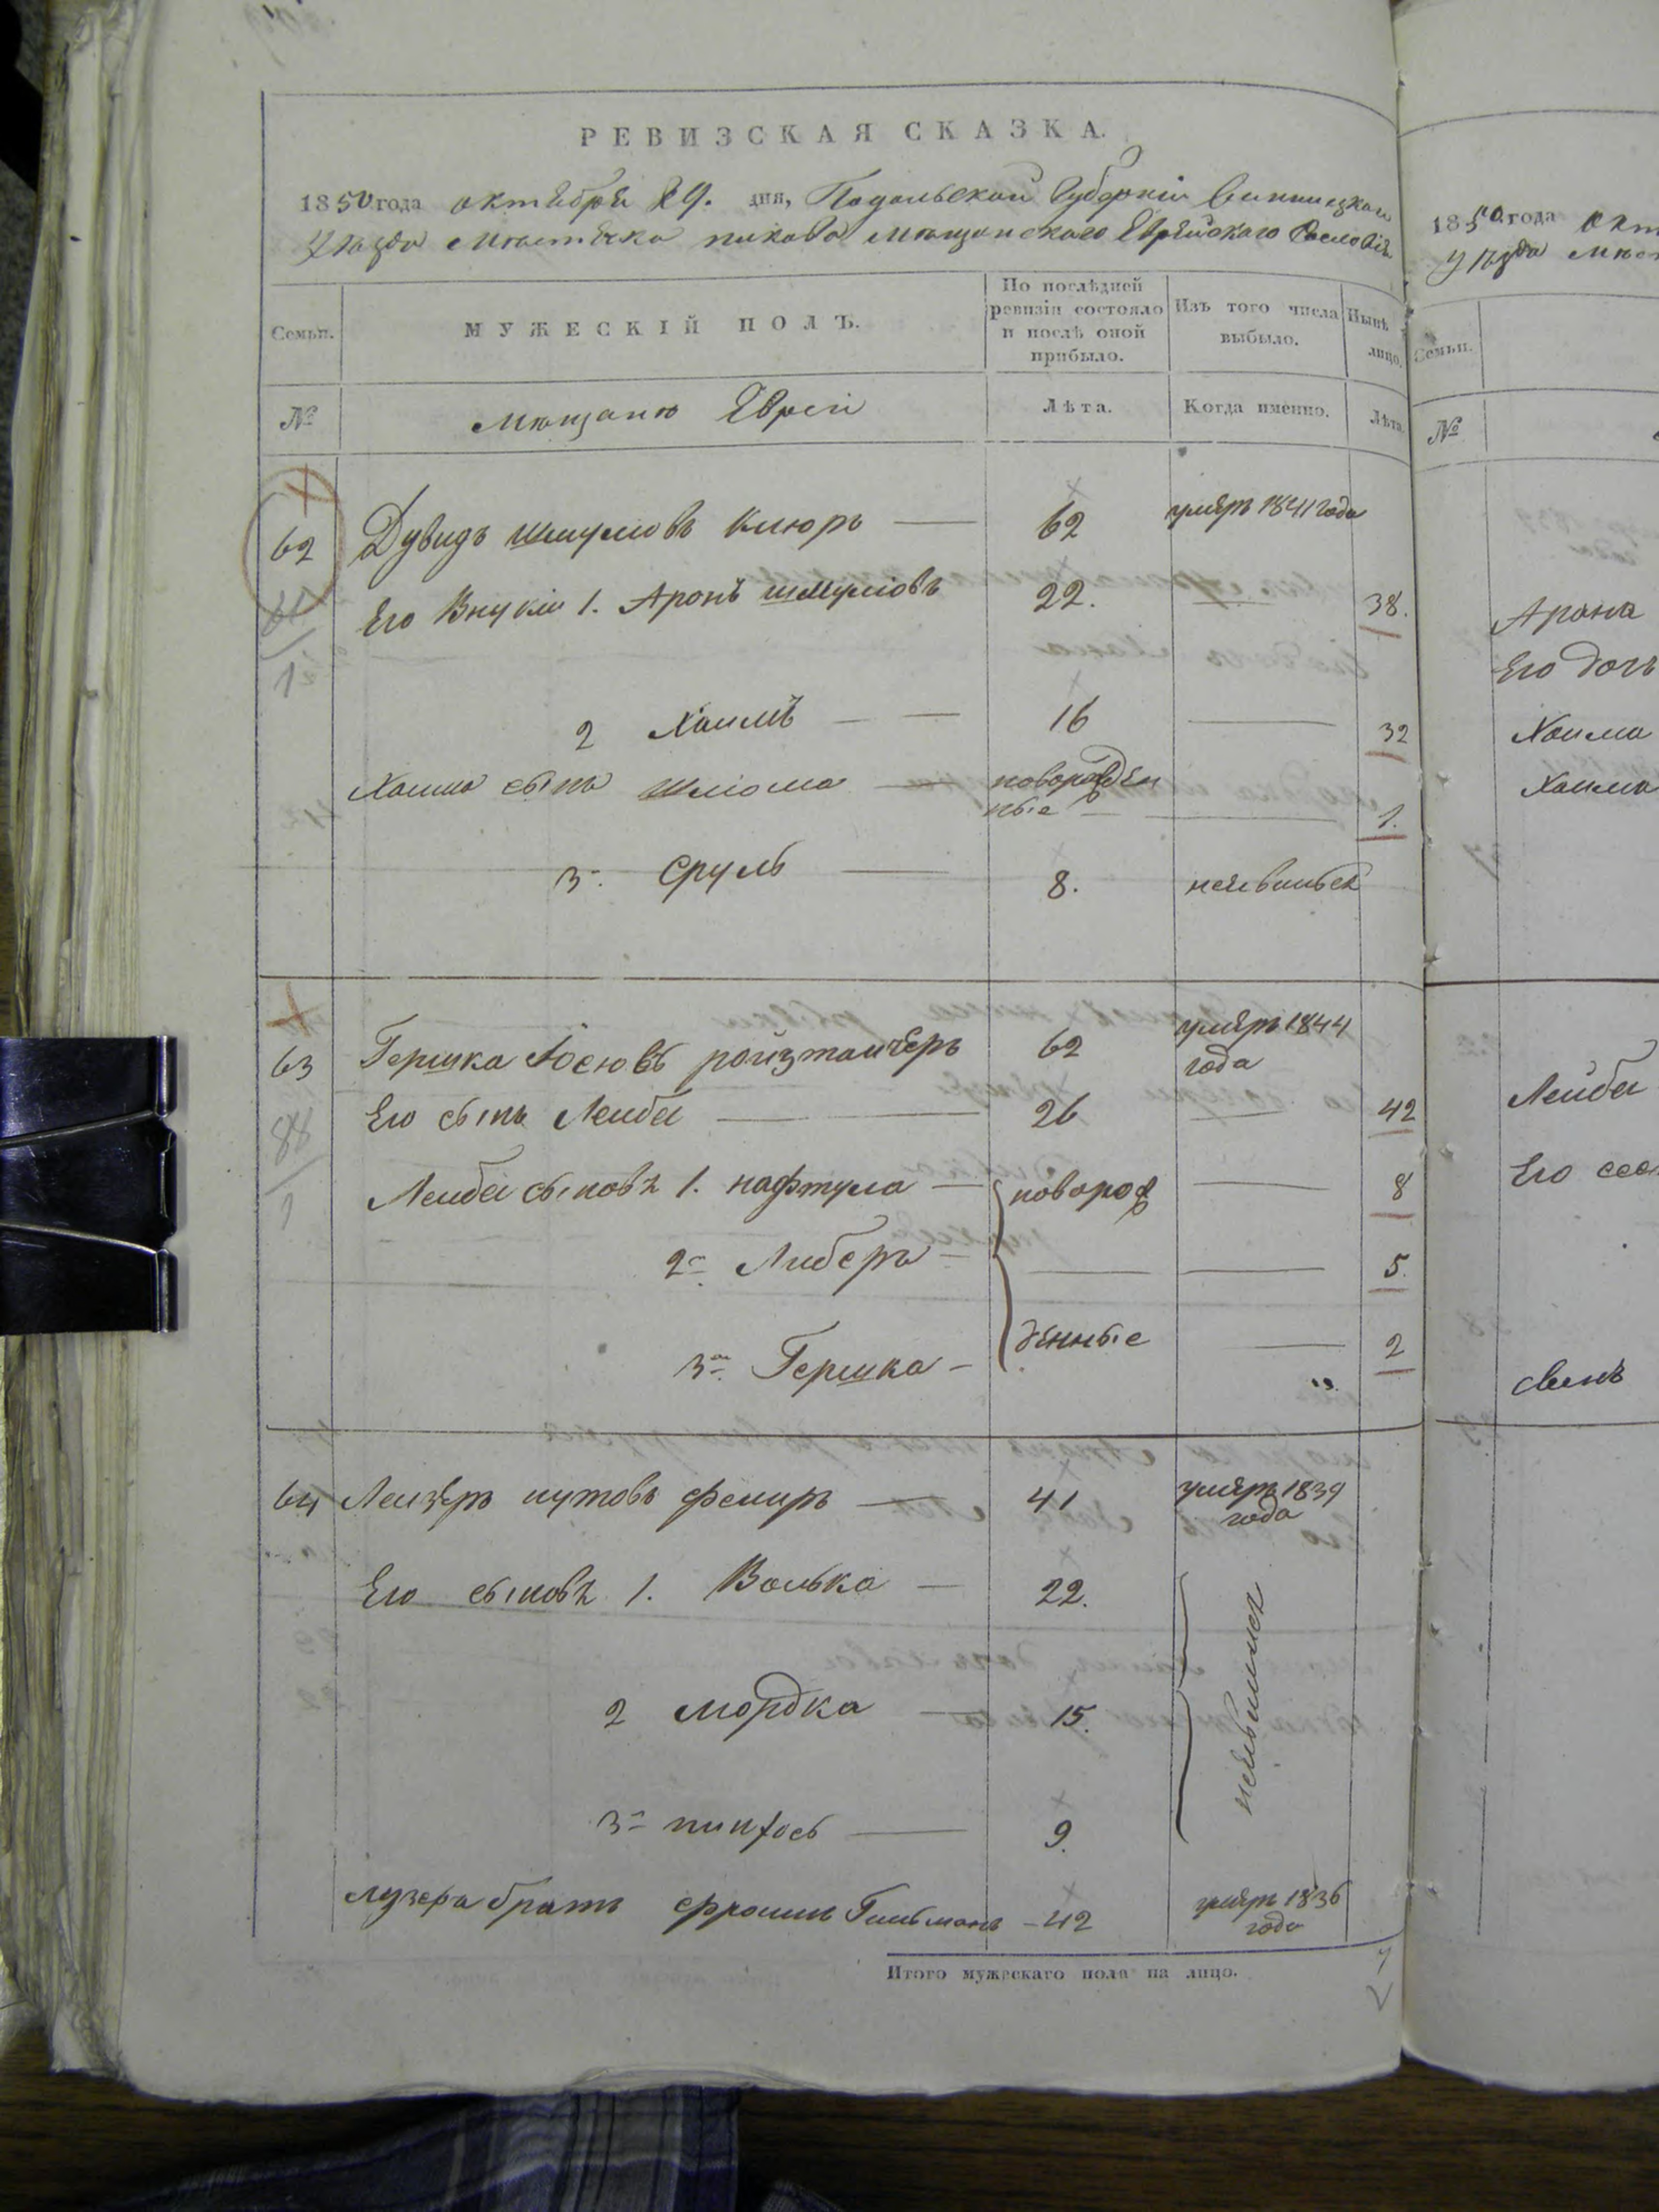 РЕВИЗСКАЯ СКАЗКА.
1850 года октября 29. дня, Подольской Губернии Винницкаго
уѣзда мѣстечка пикова мѣщанскаго Еврейскаго Сословія
Семьи.
МУЖЕСКІЙ ПОЛЪ.
По послѣдней ревизіи состояло и послѣ оной прибыло.
Изъ того числа выбыло.
Нынѣ на лицо.
№
мѣщане Евреи
Лѣта.
Когда именно.
Лѣта.
62 Дувидъ шмулювъ 62 умеръ 1841 года
Его Внуки 1. Аронъ шмулювъ 22. 38.
2 Хаимъ 16 32
Хаима сынъ шлома новорожден
ные 1.
3. Сруль 8. неявился
63 Гершка Іосювъ ройзтачеръ 62 умеръ 1844
года
Его сынъ Лейба 26 42
Лейби сыновя 1. нафтула новорож 8
2 Либеръ 5.
3 Гершка денные 2
64 Лейзеръ нутовъ 41 умеръ 1839
года
Его сыновя 1. Волька 22.
2 мордка 15. неявились
3 пинхосъ 9.
Лузера братъ фроимъ Гильманъ 42 умеръ 1836
года
Итого мужескаго пола на лицо. 7
1850 года окт
уѣзда мѣст
Семьи.
№
Арона
Его дочь
Хаима
Хаима
Лейби
Его